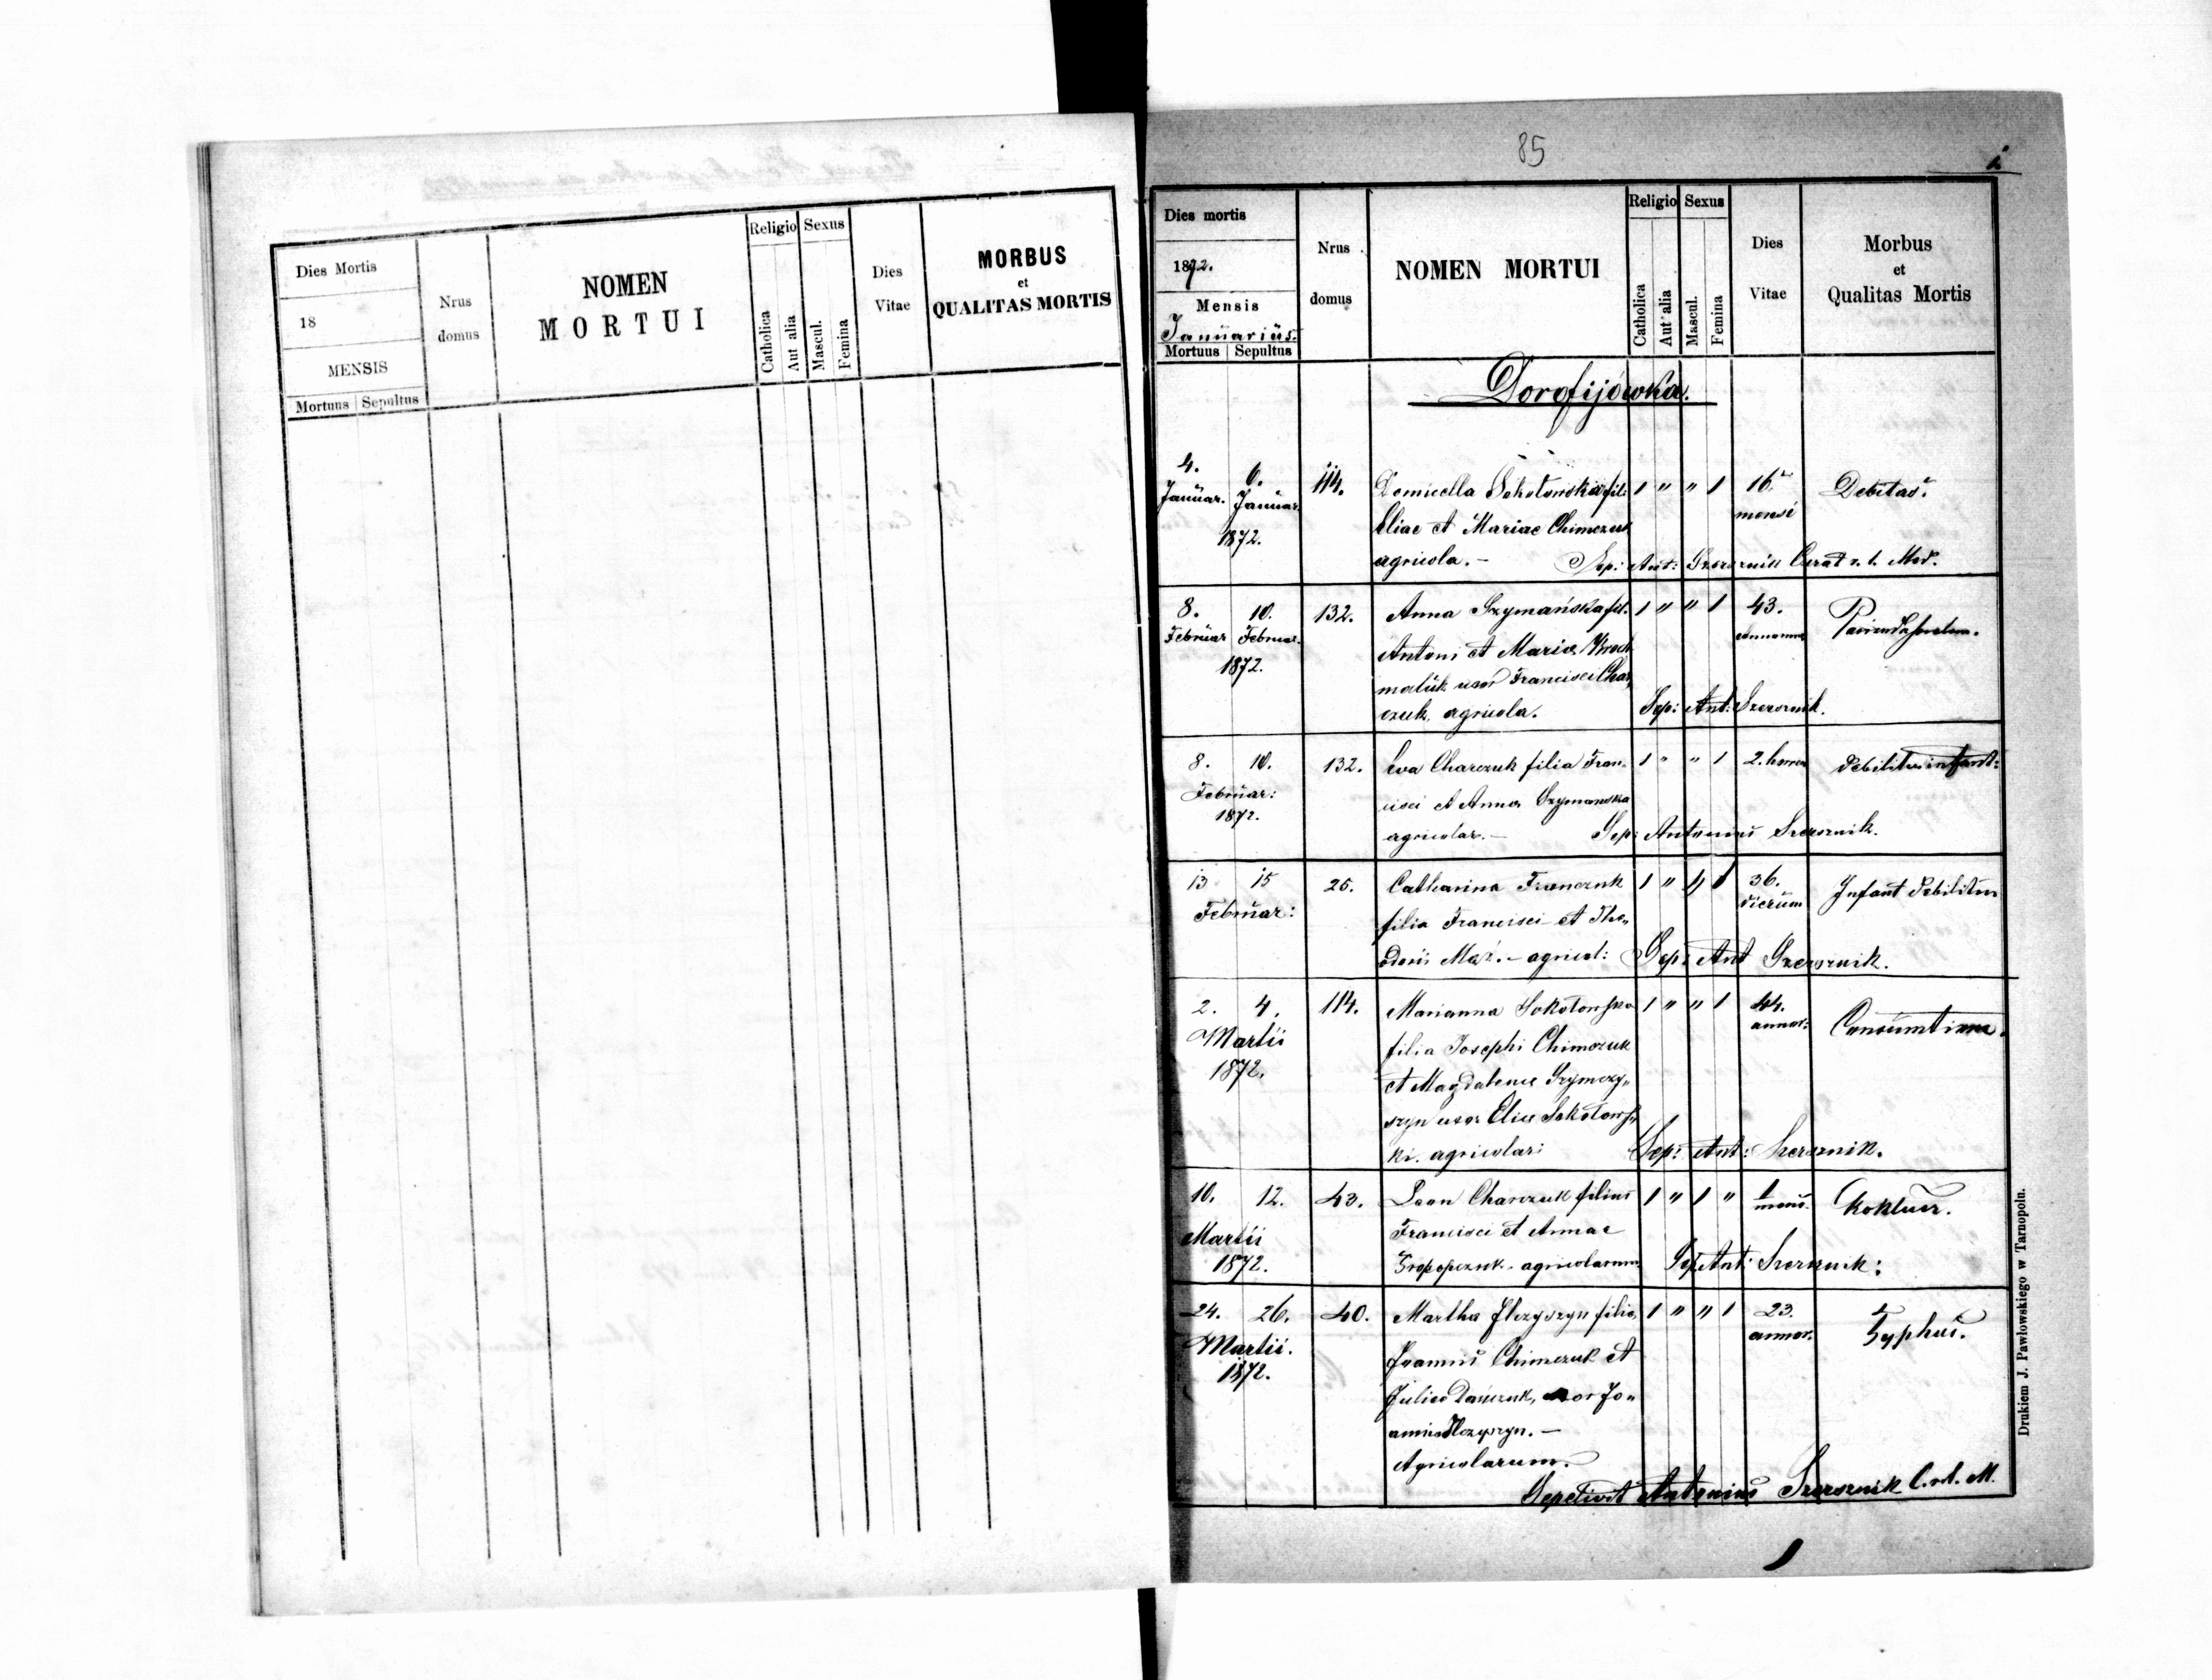 Dies Mortis
18
MENSIS
Mortuus Sepultus
Nrus
domus
NOMEN
MORTUI
Religio
Catholica
Aut alia
Sexus
Mascul.
Femina
Dies
Vitae
MORBUS
et
QUALITAS MORTIS
85
Dies mortis
1872.
Mensis
Januarius.
Mortuus Sepultus
Nrus
domus
NOMEN MORTUI
Religio
Catholica
Aut alia
Sexus
Mascul.
Femina
Dies
Vitae
Morbus
et
Qualitas Mortis
Dorofijówka.
4. 6. 114. Domicella Sokołowska fil: 1 " " 1 16. Debitas.
Januar. Januar. mensi
Eliae et Mariae Chimczuk
1872.
agricola. – Sep: Ant: Szersznik
8. 10. 132. Anna Szymańska fil. 1 " " 1 43.
Februar Februar.
Antoni et Maria
1872.
uxor Francisci Char,
czuk, agricola. Sep: Ant: Szersznik.
8. 10. 132. Eva Charczuk filia Fran- 1 " " 1 2. horar debilitas infant:
Februar: cisci et Anna Szymanska
1872.
agricolar. – Sep: Antonius Szersznik.
13 15 25. Catharina Franczuk 1 " " 1 36. Infant debilitas
Februar: dierum
filia Francisci et The„
odoris Maz. – agricol: Sep: Ant Szersznik.
2. 4. 114. Marianna Sokołowska 1 " " 1 44.
Martii annor:
filia Josephi Chimczuk
1872.
et Magdalena Szymczy„
szyn uxor Elice Sokołows„
ki. agricolar: Sep: Ant: Szersznik.
10. 12. 43. Leon Charczuk filius 1 " 1 " 1 Kokluss.
mens.
Martii Francisci et Annae
1872. Prokopczuk – agricolarum Sep. Ant: Szersznik:
24. 26. 40. Martha Ilczyszyn filia 1 " " 1 23. Typhus.
Martii. annor.
1872. Joannis Chimczuk et
Julia Dańczuk, uxor Jo„
annis Ilczyszyn. –
Agricolarum.
Sepelivit Antonius Szersznik C. r. l. M.
Drukiem J. Pawłowskiego w Tarnopolu.
1